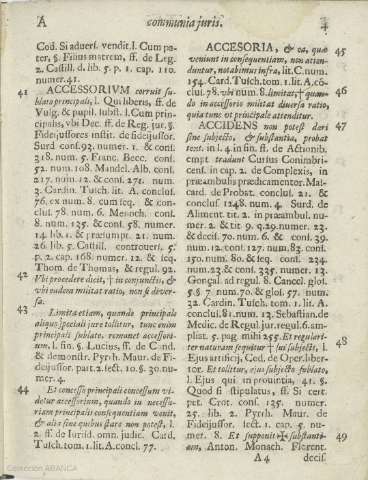 A communia juris. 4
Cod. Si adversi. vendit. l. Cum pa-
ter, §. Filius matrem, ff. de Leg.
2. Castill. d. lib. 5. p. 1. cap. 110.
numer. 41.
41 ACCESSORIVM corruit su-
blato principali, l. Qui liberis, ff. de
Vulg. & pupil. subst. l. Cum prin-
cipalis, vbi Dec. ff. de Reg. jur. §.
Fidejussores instit. de fidejussor.
Surd cons. 93. numer. 1. & cons.
318. num. 5. Franc. Becc. cons.
52. num. 108. Mandel. Alb. cons.
217. num. 12. & cons. 276. num.
3. Cardin. Tusch. lit. A. conclus.
76. ex num. 8. cum seq. & con-
clus. 78. num. 6. Menoch. cons.
8. num. 135. & cons. 58. numer.
14. lib. 1. & præsumpt. 21. num.
26. lib. 5. Castill. controvers. 5.
p. 2. cap. 168. numer. 12. & seq.
Thom. de Thomas, & regul. 92.
42 Vbi procedere dicit, † in conjunctis, &
vbi eadem militat ratio, non si diver-
sa.
43 Limita etiam, quando principale
aliquo speciali jure tollitur, tunc enim
principali sublato, remanet accessori-
um, l. fin. §. Lucius, ff. de Cond.
& demonstr. Pyrrh. Maur. de Fi-
dejussor. part. 2. sect. 10. §. 30. nu-
mer. 4.
44 Et concesso principali concessum vi-
detur accessorium, quando in necessa-
riam principalis consequentiam venit,
& aliò sine quibus stare non potest, l.
2. ff. de Jurisd. omn. judic. Card.
Tusch. tom. 1. lit. A. concl. 77.
ACCESORIA, & ea, quæ 45
veniunt in consequentiam, non atten-
duntur, notabimus infra, lit. C. num.
154. Card. Tusch. tom. 1. lit. A. cō-
clus. 78. vbi num. 8. limitat, † quan- 46
do in accessorio militat diversa ratio,
quia tunc vt principale attenditur.
ACCIDENS non potest dari 47
sine subjecto, & substantia, probat
text. in l. 4. in fin. ff. de Actionib.
empt. tradunt Cursus Conimbri-
cens. in cap. 2. de Complexis, in
præambulis prædicamentor. Mas-
card. de Probat. conclus. 21. &
conclus 1248. num. 4. Surd. de
Aliment. tit. 2. in præambul. nu-
mer. 2. & tit. 9. q. 29. numer. 23.
& decis. 70. num. 6. & cons. 39.
num. 12. cons. 127. num. 83. cons.
150. num. 80. & seq. cons. 234.
num. 23. & cons. 335. numer. 13.
Gonçal. ad regul. 8. Cancel. glos.
5. §. 7. num. 70. & glos. 57. num.
32. Cardin. Tusch. tom. 1. lit. A.
conclus. 81. num. 12. Sebastian. de
Medic. de Regul. jur. regul. 6. am-
pliat. 5. pag. mihi 255. Et regulari-
ter naturam sequitur † sui subjecti, l. 48
Ejus artificij, Cod. de Oper. liber-
tor. Et tollitur, ejus subjecto sublato,
l. Ejus qui in provintia, 41. §.
Quod si stipulatus, ff. Si cert.
pet. Crot. cons. 135. numer.
25. lib. 2. Pyrrh. Maur. de
Fidejussor. sect. 1. cap. 5. nu-
mer. 8. Et supponit † substanti- 49
am, Anton. Monach. Florent.
A 4 decis.
Colección ABANCA